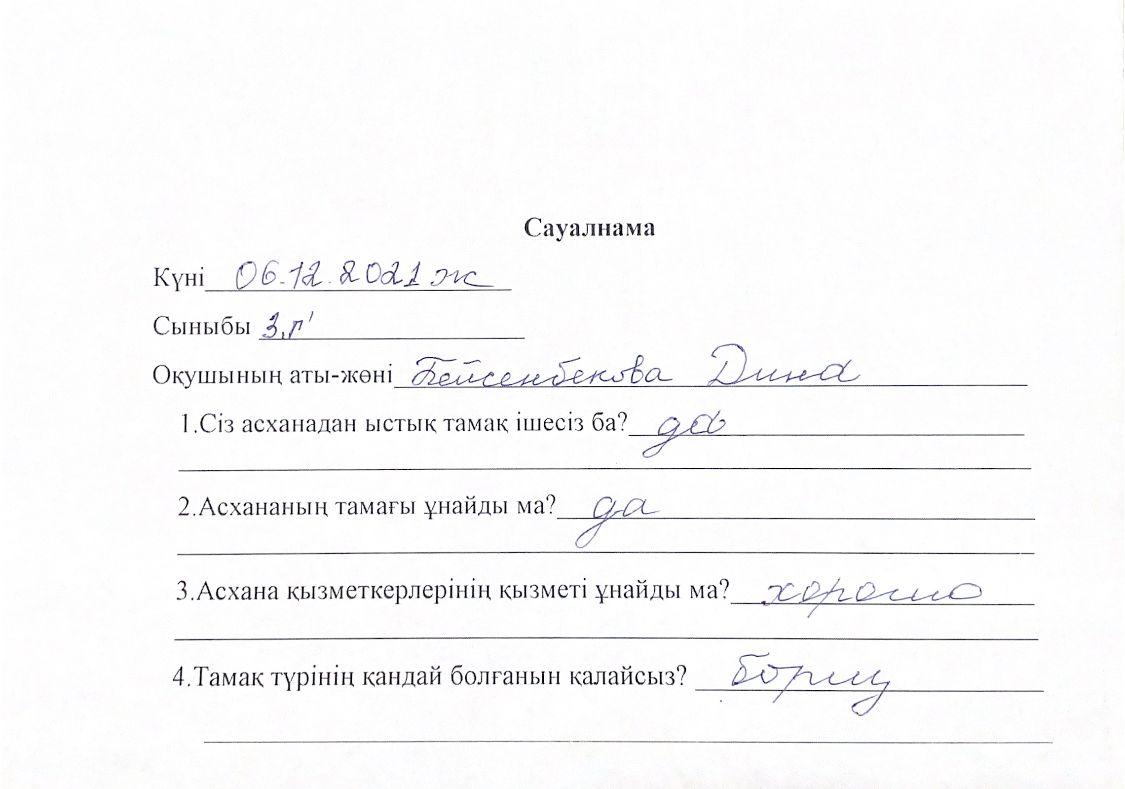 Сауалнама
Күні 06.12.2021 ж
Сыныбы 3 "г"
Оқушының аты-жөні Бейсенбекова Дина
1.Сіз асханадан ыстық тамақ ішесіз ба? да
2.Асхананың тамағы ұнайды ма? да
3.Асхана қызметкерлерінің қызметі ұнайды ма? хорошо
4.Тамақ түрінің қандай болғанын қалайсыз? борщ